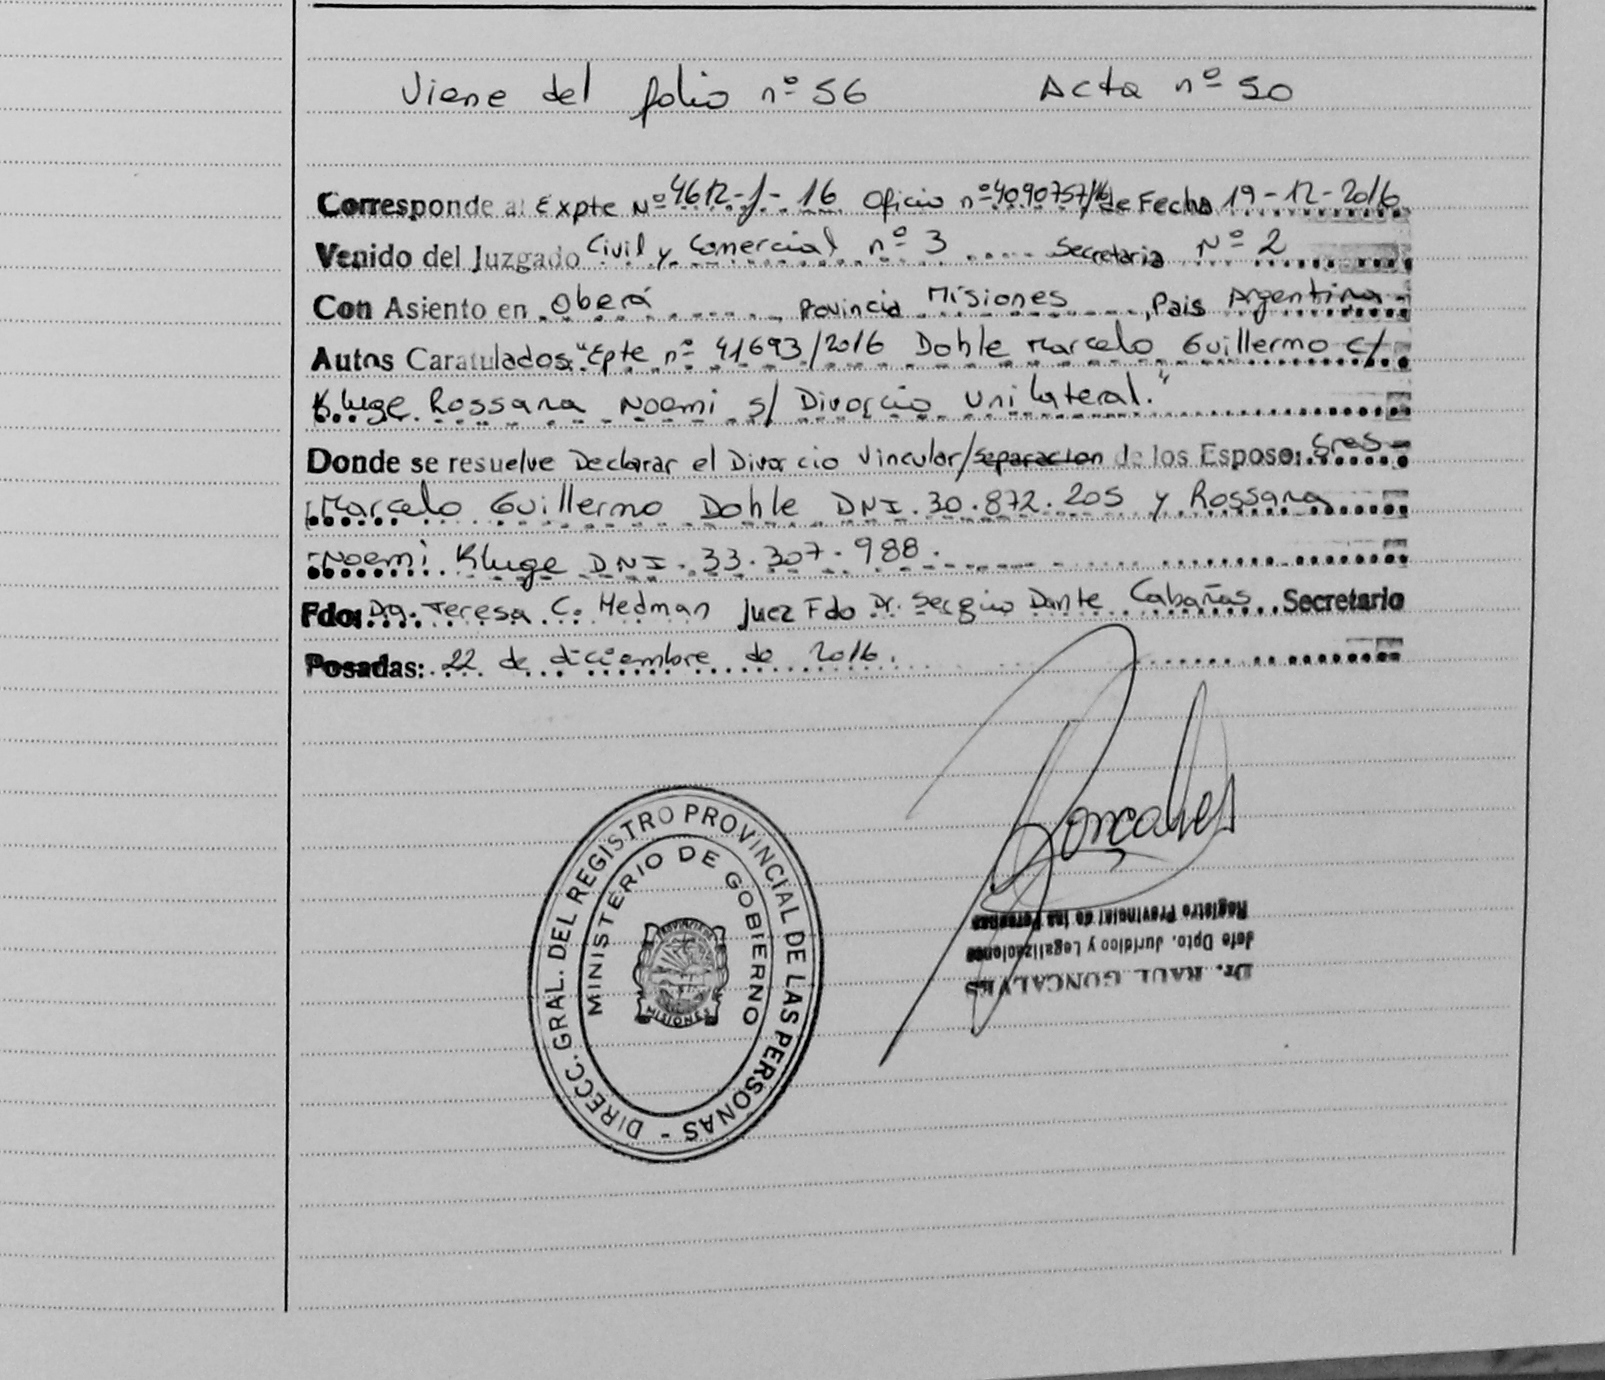 Viene del folio nº 56 Acta nº 50
Corresponde al Expte Nº 4612-J-16 Oficio nº 4090757/16 de Fecha 19-12-2016
Venido del Juzgado Civil y Comercial nº 3 Secretaria Nº 2
Con Asiento en Oberá, Provincia Misiones, Pais Argentina-
Autos Caratulados: "Epte nº 41693/2016 Dohle Marcelo Guillermo c/
Kluge Rossana Noemi s/ Divorcio Unilateral."
Donde se resuelve Declarar el Divorcio Vincular/separacion de los Esposo: Sres-
Marcelo Guillermo Dohle DNI. 30.872.205 y Rossana
Noemi Kluge DNI. 33.307.988.
Fdo: Dra. Teresa C. Hedman Juez Fdo Dr. Sergio Dante Cabañas Secretario
Posadas: 22 de diciembre de 2016.
DIRECC. GRAL. DEL REGISTRO PROVINCIAL DE LAS PERSONAS -
MINISTERIO DE GOBIERNO
PROVINCIA DE
MISIONES
Goncalves
Dr. RAUL GONCALVES
Jefe Dpto. Jurídico y Legalizaciones
Registro Provincial de las Personas